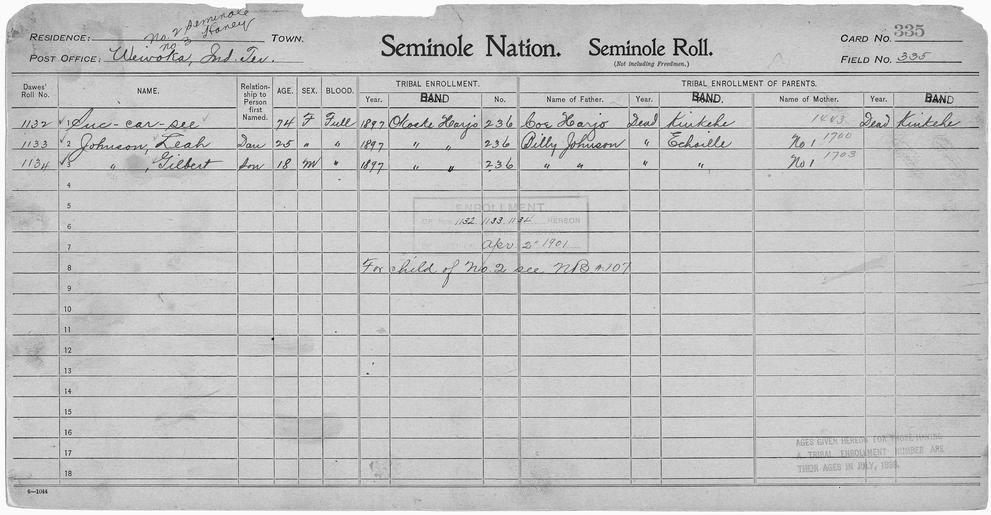 No. 2 Seminole
No 3 Haney
RESIDENCE: TOWN.
POST OFFICE: Wewoka, Ind. Ter.
Seminole Nation. Seminole Roll.
(Not including Freedmen.)
CARD NO. 335
FIELD NO. 335
Dawes' Roll No. NAME. Relationship to Person first Named. AGE. SEX. BLOOD. TRIBAL ENROLLMENT. TRIBAL ENROLLMENT OF PARENTS.
Year. BAND No. Name of Father. Year. BAND. Name of Mother. Year. BAND
1132 1 Suc-car-see 74 F Full 1897 Otoske Harjo 236 Coe Harjo Dead Kinkehe 1443 Dead Kinkehe
1133 2 Johnson, Leah Dau 25 " " 1897 " " 236 Billy Johnson " Echoille No 1 1700
1134 3 " , Gilbert Son 18 M " 1897 " " 236 " " " " No 1 1703
4
5
ENROLLMENT
6 OF NOS. 1132 1133 1134 HEREON
7 Apr 2 1901
8 For child of No. 2 see NB #107
9
10
11
12
13
14
15
16
17
18
AGES GIVEN HEREON FOR THOSE HAVING
A TRIBAL ENROLLMENT NUMBER ARE
THEIR AGES IN JULY, 1898.
6—1044